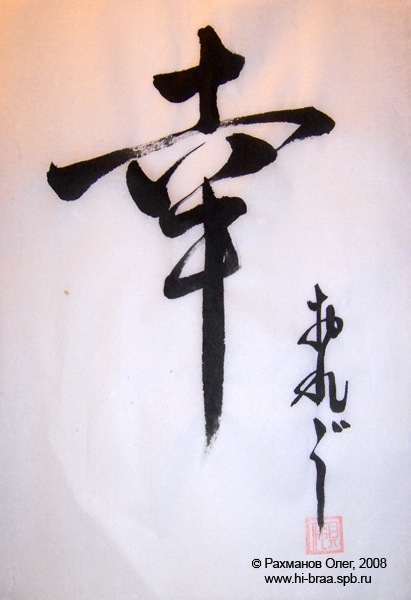 幸
おれぐ
© Рахманов Олег, 2008
www.hi-braa.spb.ru